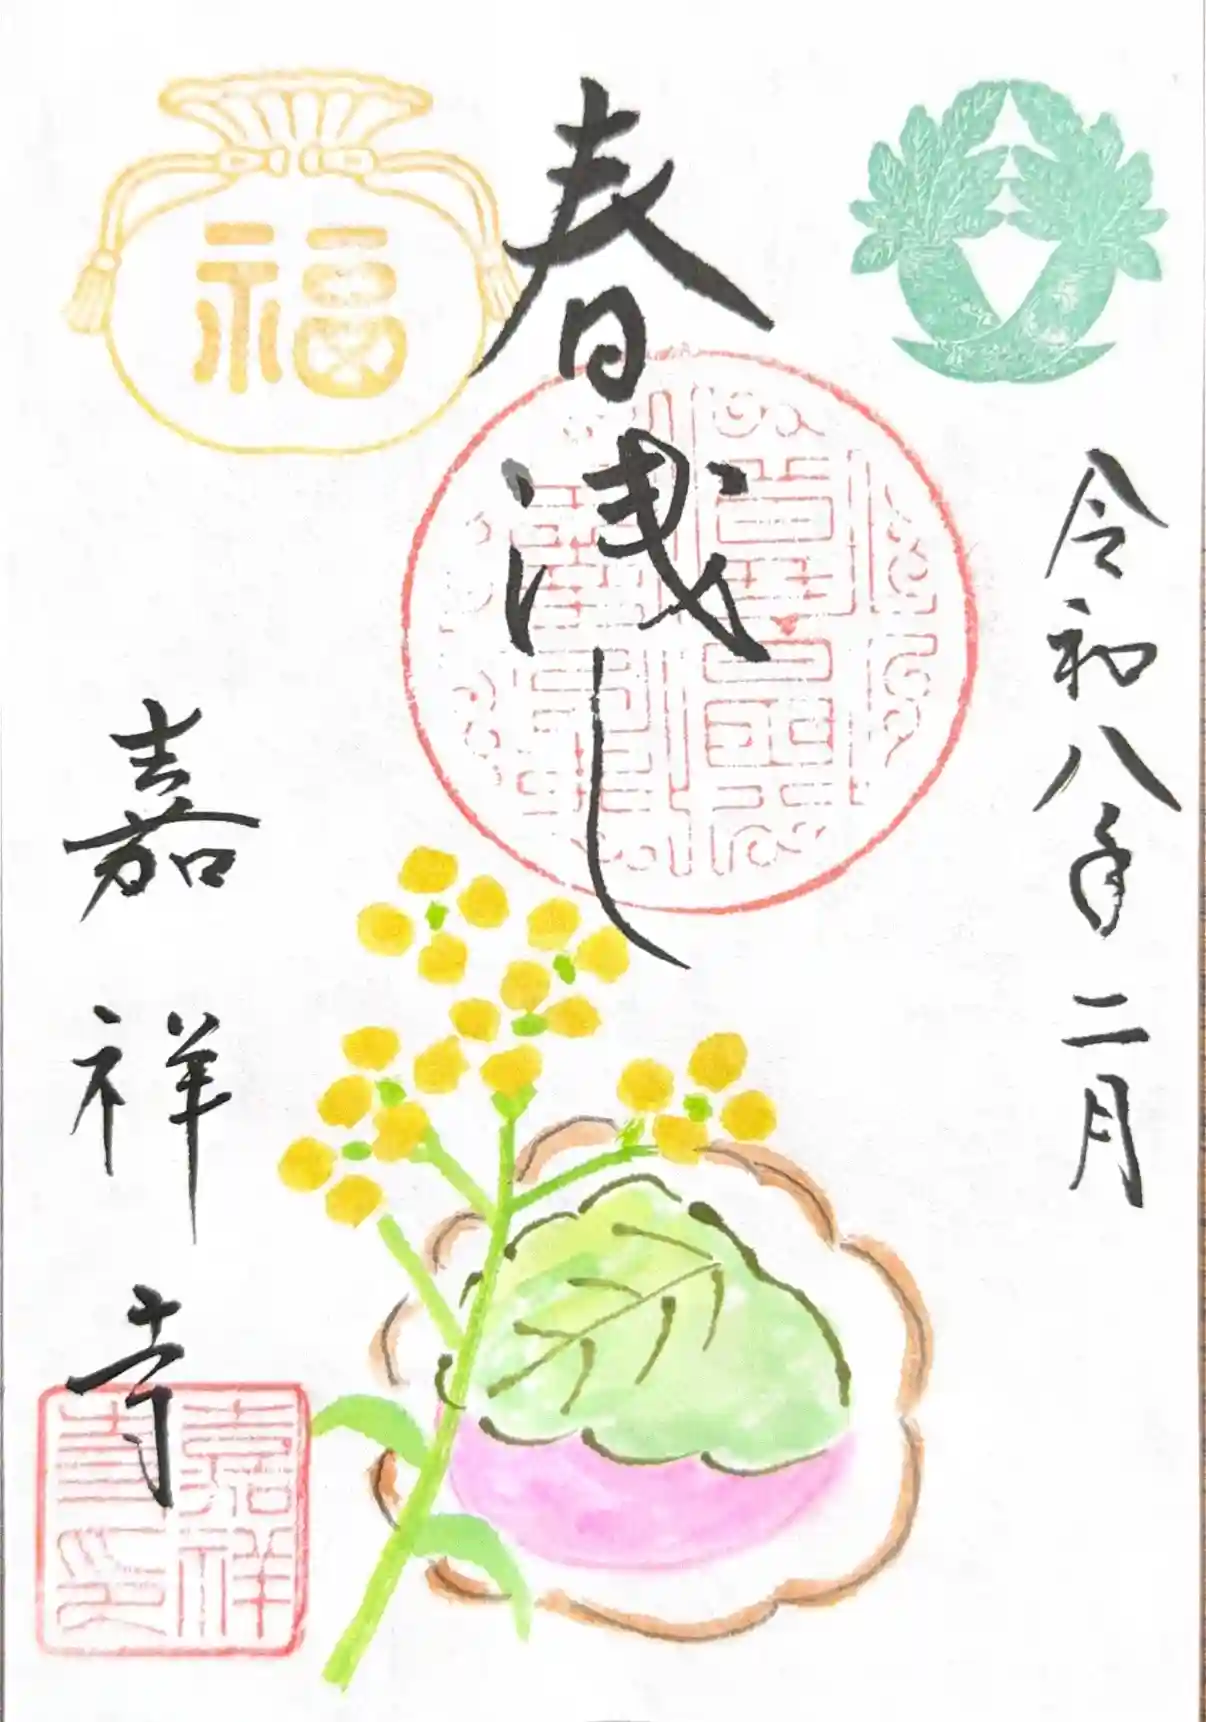 令和八年二月
春浅し
福
嘉祥寺
嘉祥寺印